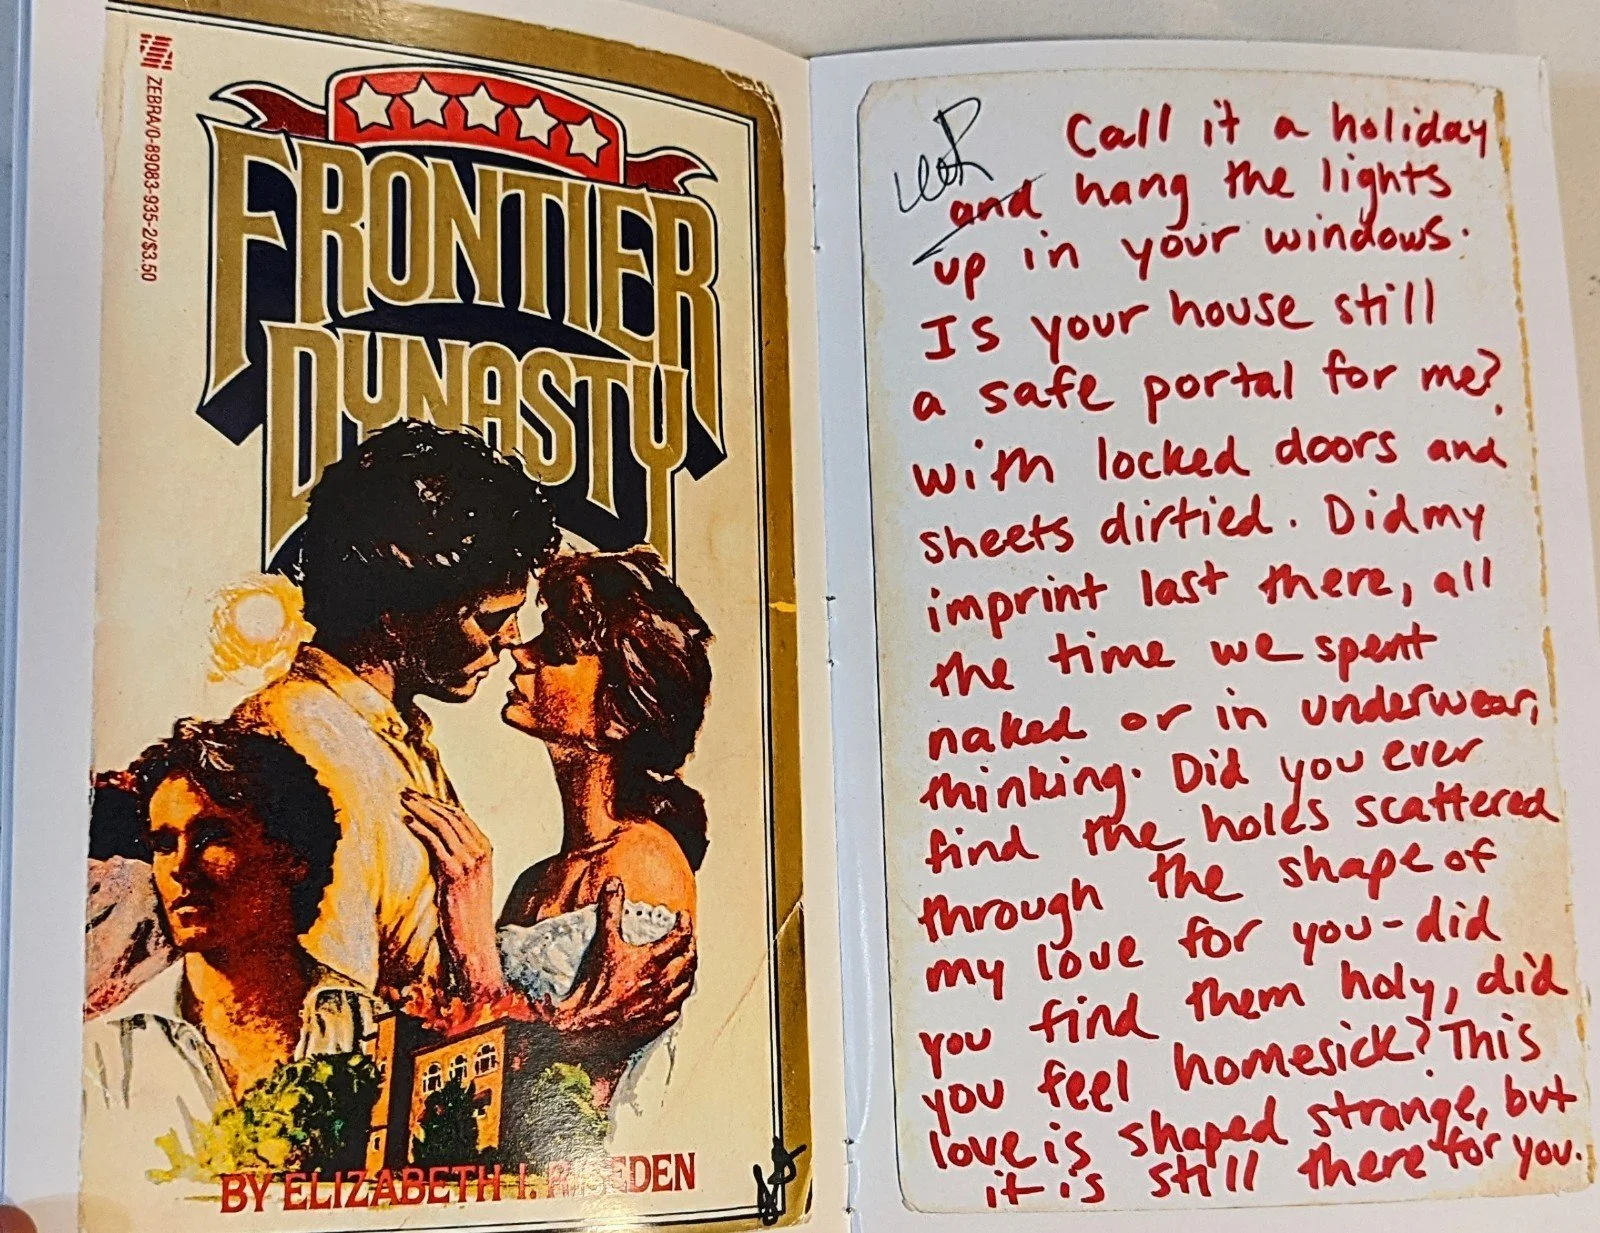 ZEBRA/0-89083-935-2/$3.50
FRONTIER
DYNASTY
BY ELIZABETH I.
Call it a holiday
and hang the lights
up in your windows.
Is your house still
a safe portal for me?
with locked doors and
sheets dirtied. Did my
imprint last there, all
the time we spent
naked or in underwear,
thinking. Did you ever
find the holes scattered
through the shape of
my love for you-did
you find them holy, did
you feel homesick? This
love is shaped strange, but
it is still there for you.